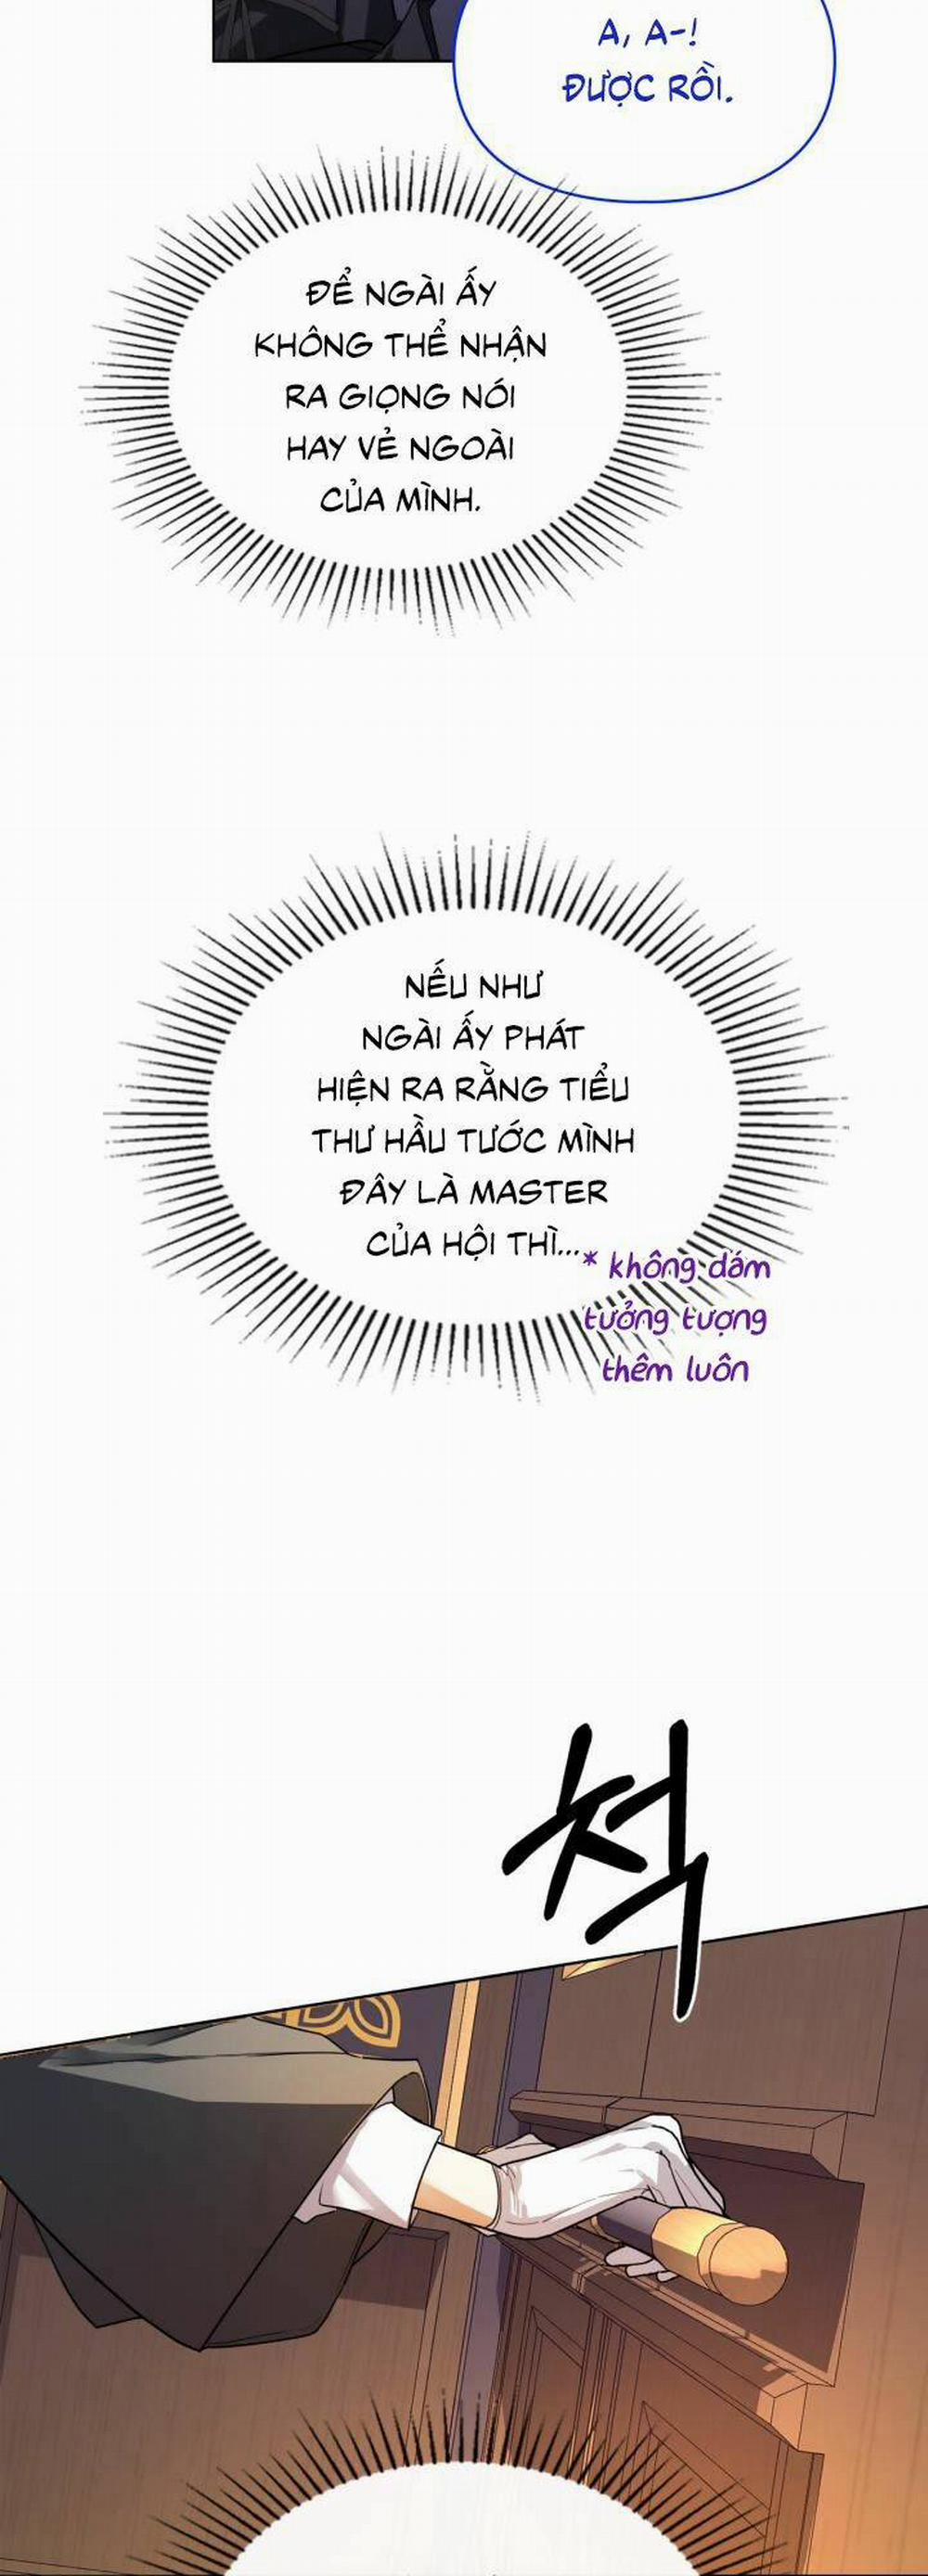 A, A-!
ĐƯỢC RỒI.
ĐỂ NGÀI ẤY
KHÔNG THỂ NHẬN
RA GIỌNG NÓI
HAY VẺ NGOÀI
CỦA MÌNH.
NẾU NHƯ
NGÀI ẤY PHÁT
HIỆN RA RẰNG TIỂU
THƯ HẦU TƯỚC MÌNH
ĐÂY LÀ MASTER
CỦA HỘI THÌ...
* không dám
tưởng tượng
thêm luôn
척